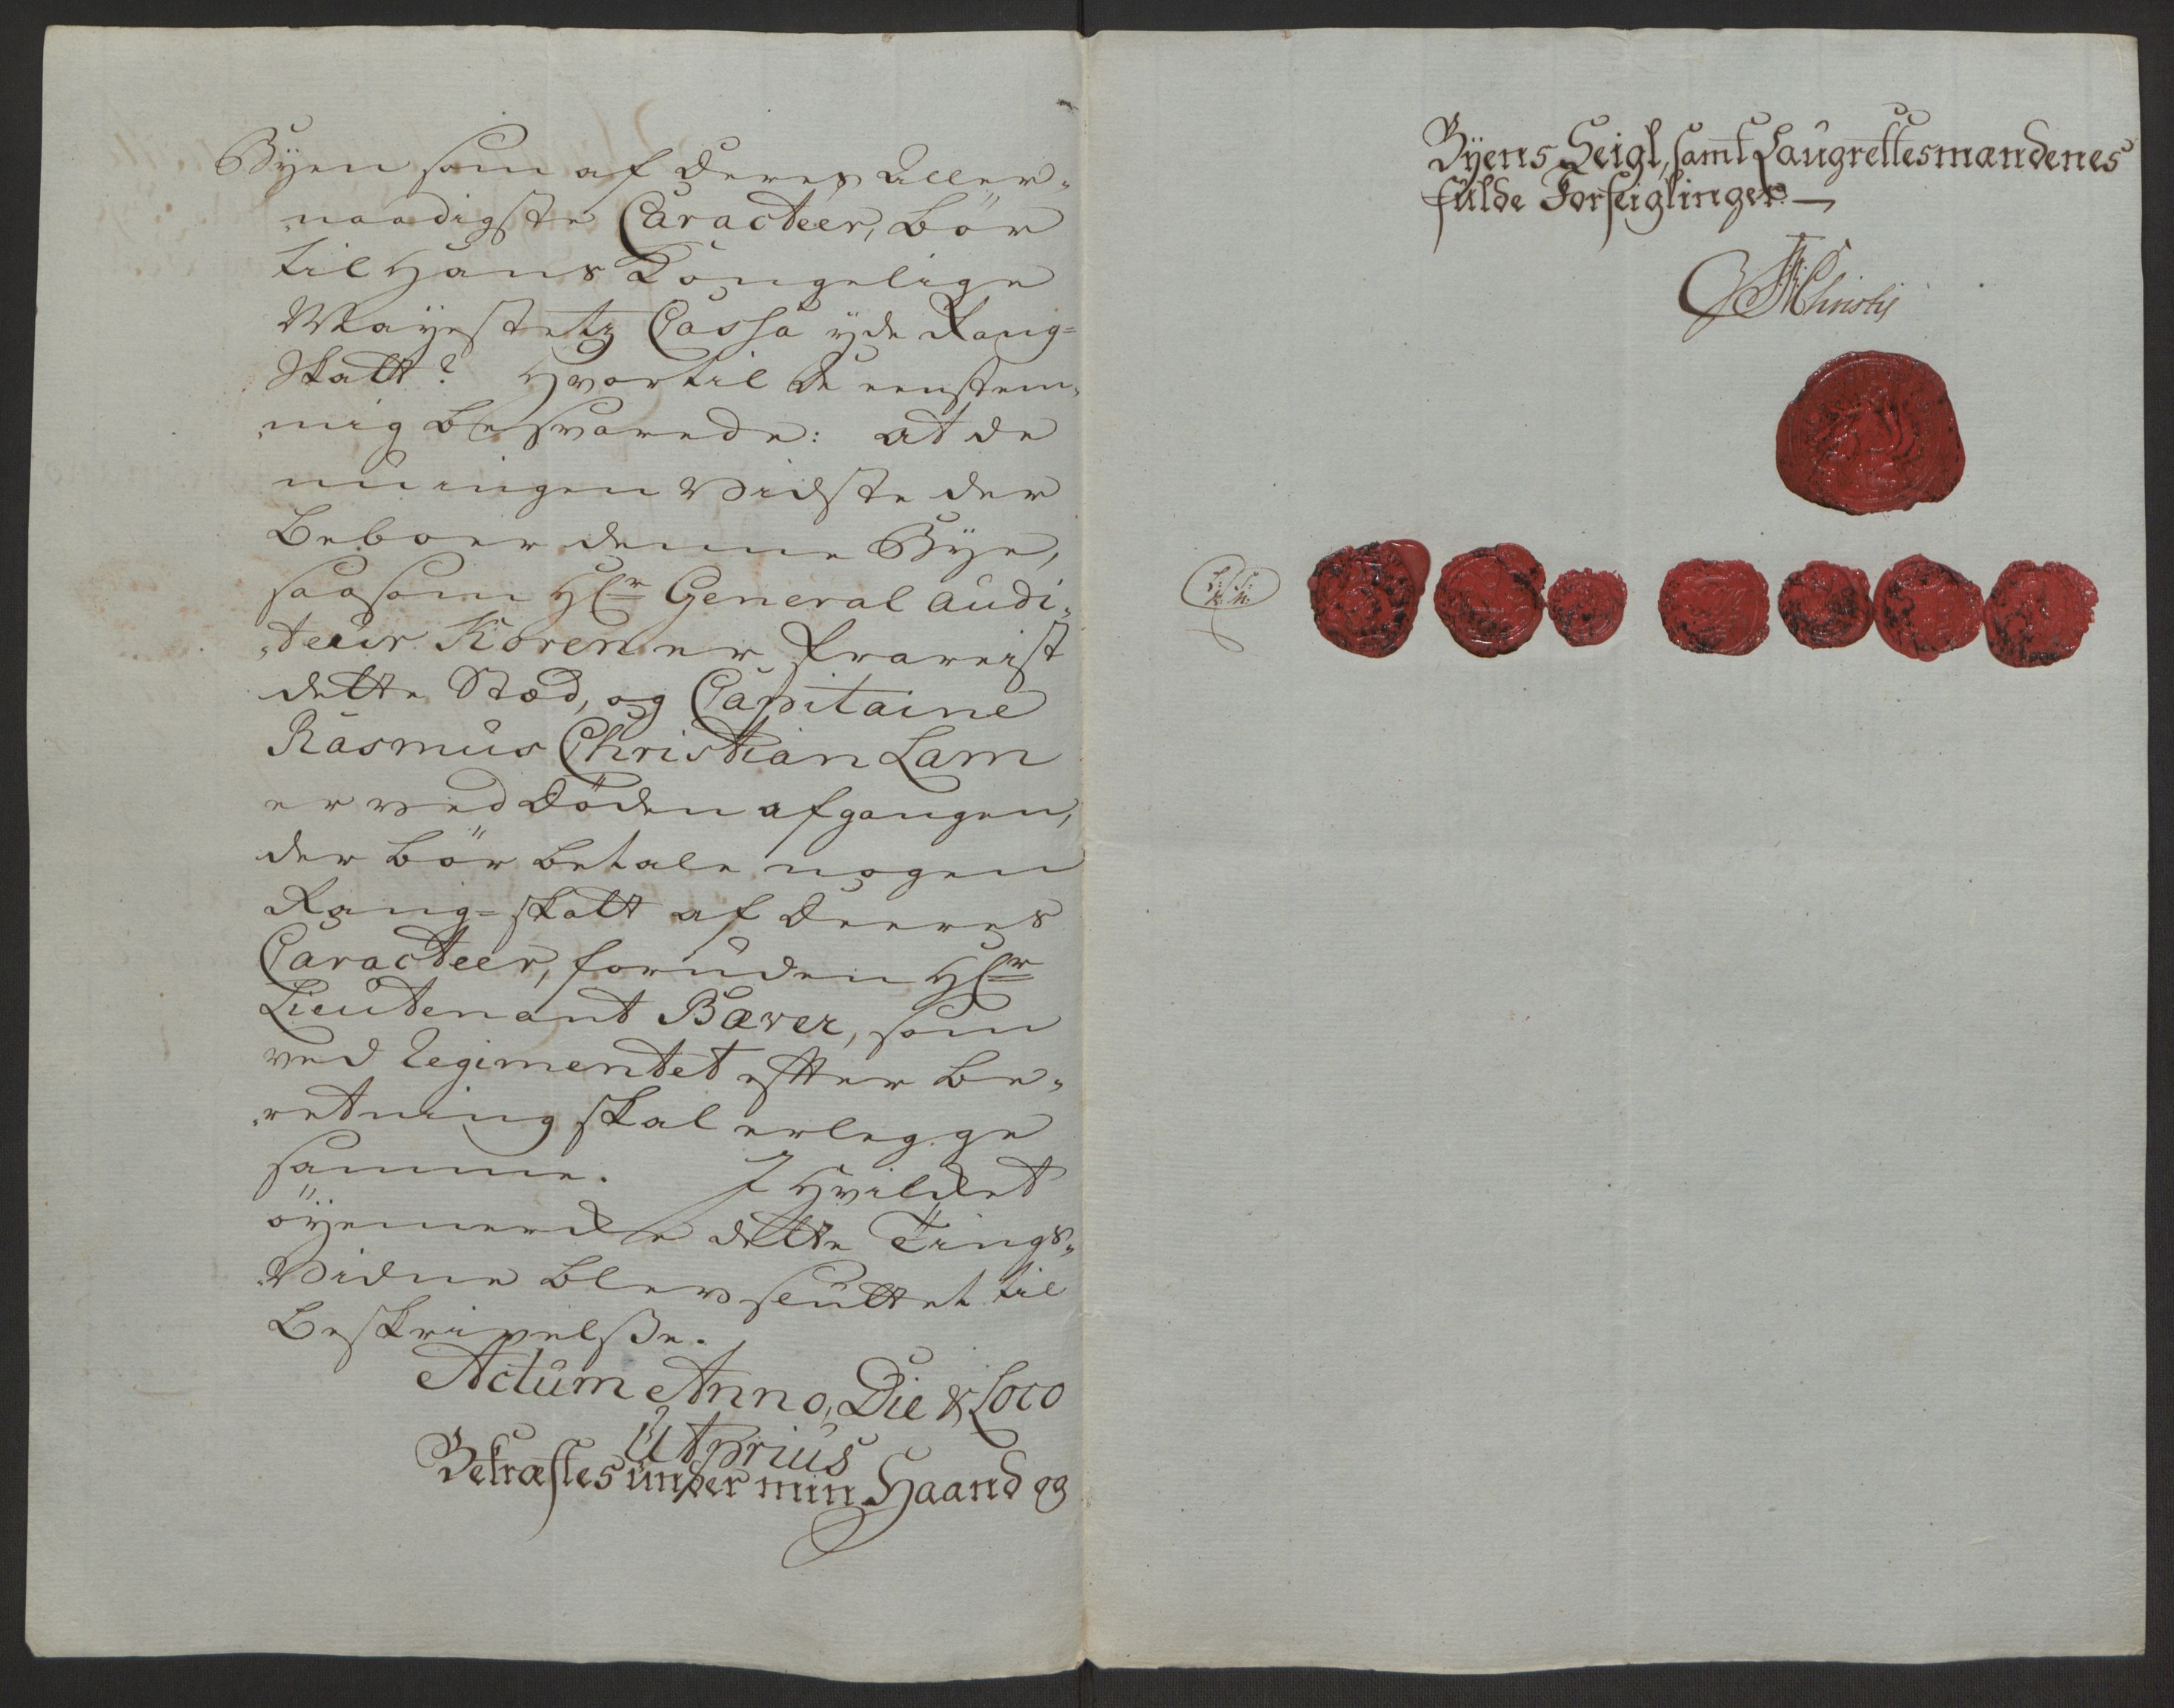 Byen som af deres aller-
naadigste Caracteer, bör
til Hans Kongelige
Mayestetz Cassa yde Rang-
Skatt? Hvortil de eenstem-
mig besvarede: at de
nu ingen vidste der
beboer denne Bye,
saasom Hr General Audi-
teur Koren er frareist
dette Stæd, og Capitaine
Rasmus Christian Lam
er ved döden afgangen,
der bör betale nogen
Rang-skatt af deeres
Caracteer, foruden Hr
Lieutenant Bæver, som
ved Regimentet efter be-
retning skal erlegge
samme. I hvilket
öyemerke dette Tings-
Vidne blev sluttet til
beskrivelsse.
Actum Anno, Die & Loco
Ut prius
Bekræftes under min Haand og
Byens Seigl, samt Laugrettesmændenes
fulde Forseiglinger.—
Christij